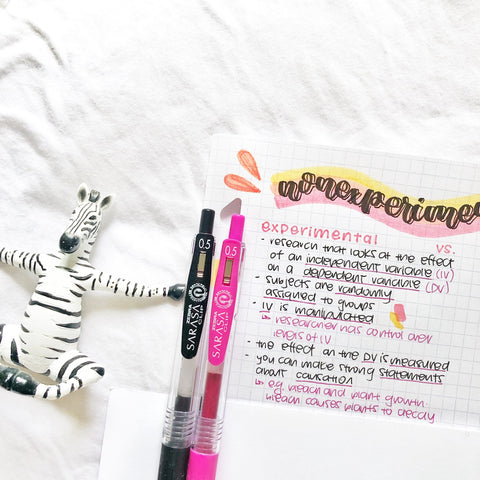 nonexperime
experimental
vs.
- research that looks at the effect
of an independent variable (IV)
on a dependent variable (DV)
- subjects are randomly
assigned to groups
- IV is manipulated
↳ researcher has control over
levels of IV
- the effect on the DV is measured
- you can make strong statements
about causation
↳ e.g. bleach and plant growth.
bleach causes plants to decay
0.5
ZEBRA
SARASA
CLIP
0.5
ZEBRA
SARASA
CLIP